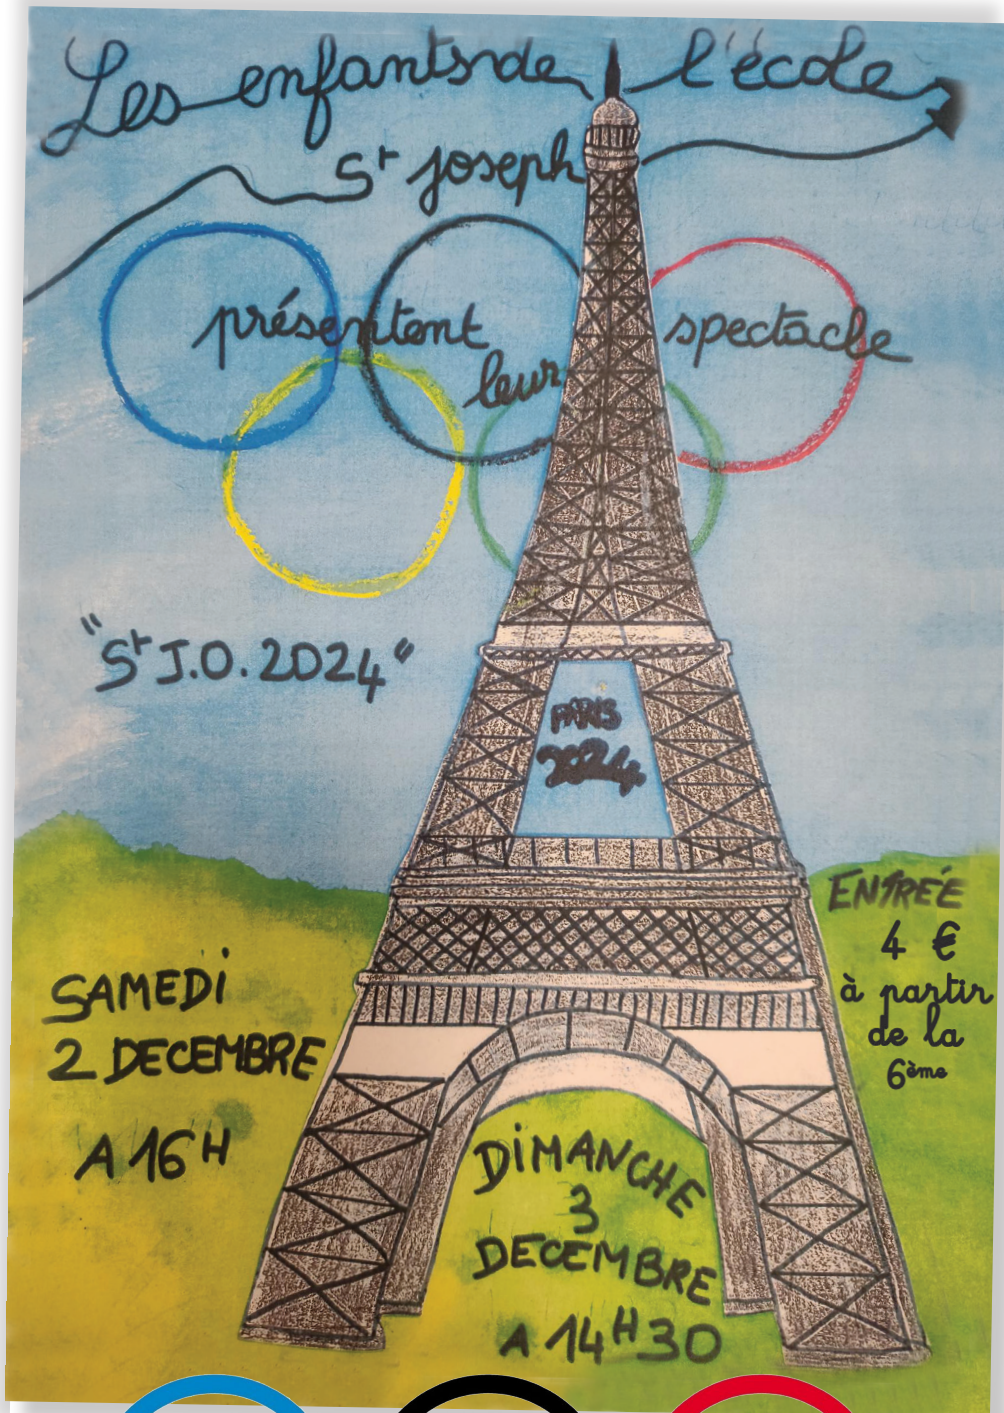 Les enfants de l'école
St joseph
présentent leur spectacle
"St J.O. 2024"
PARIS
2024
ENTRÉE
4 €
à partir
de la
6ème
SAMEDI
2 DECEMBRE
A 16H
DIMANCHE
3
DECEMBRE
A 14H30